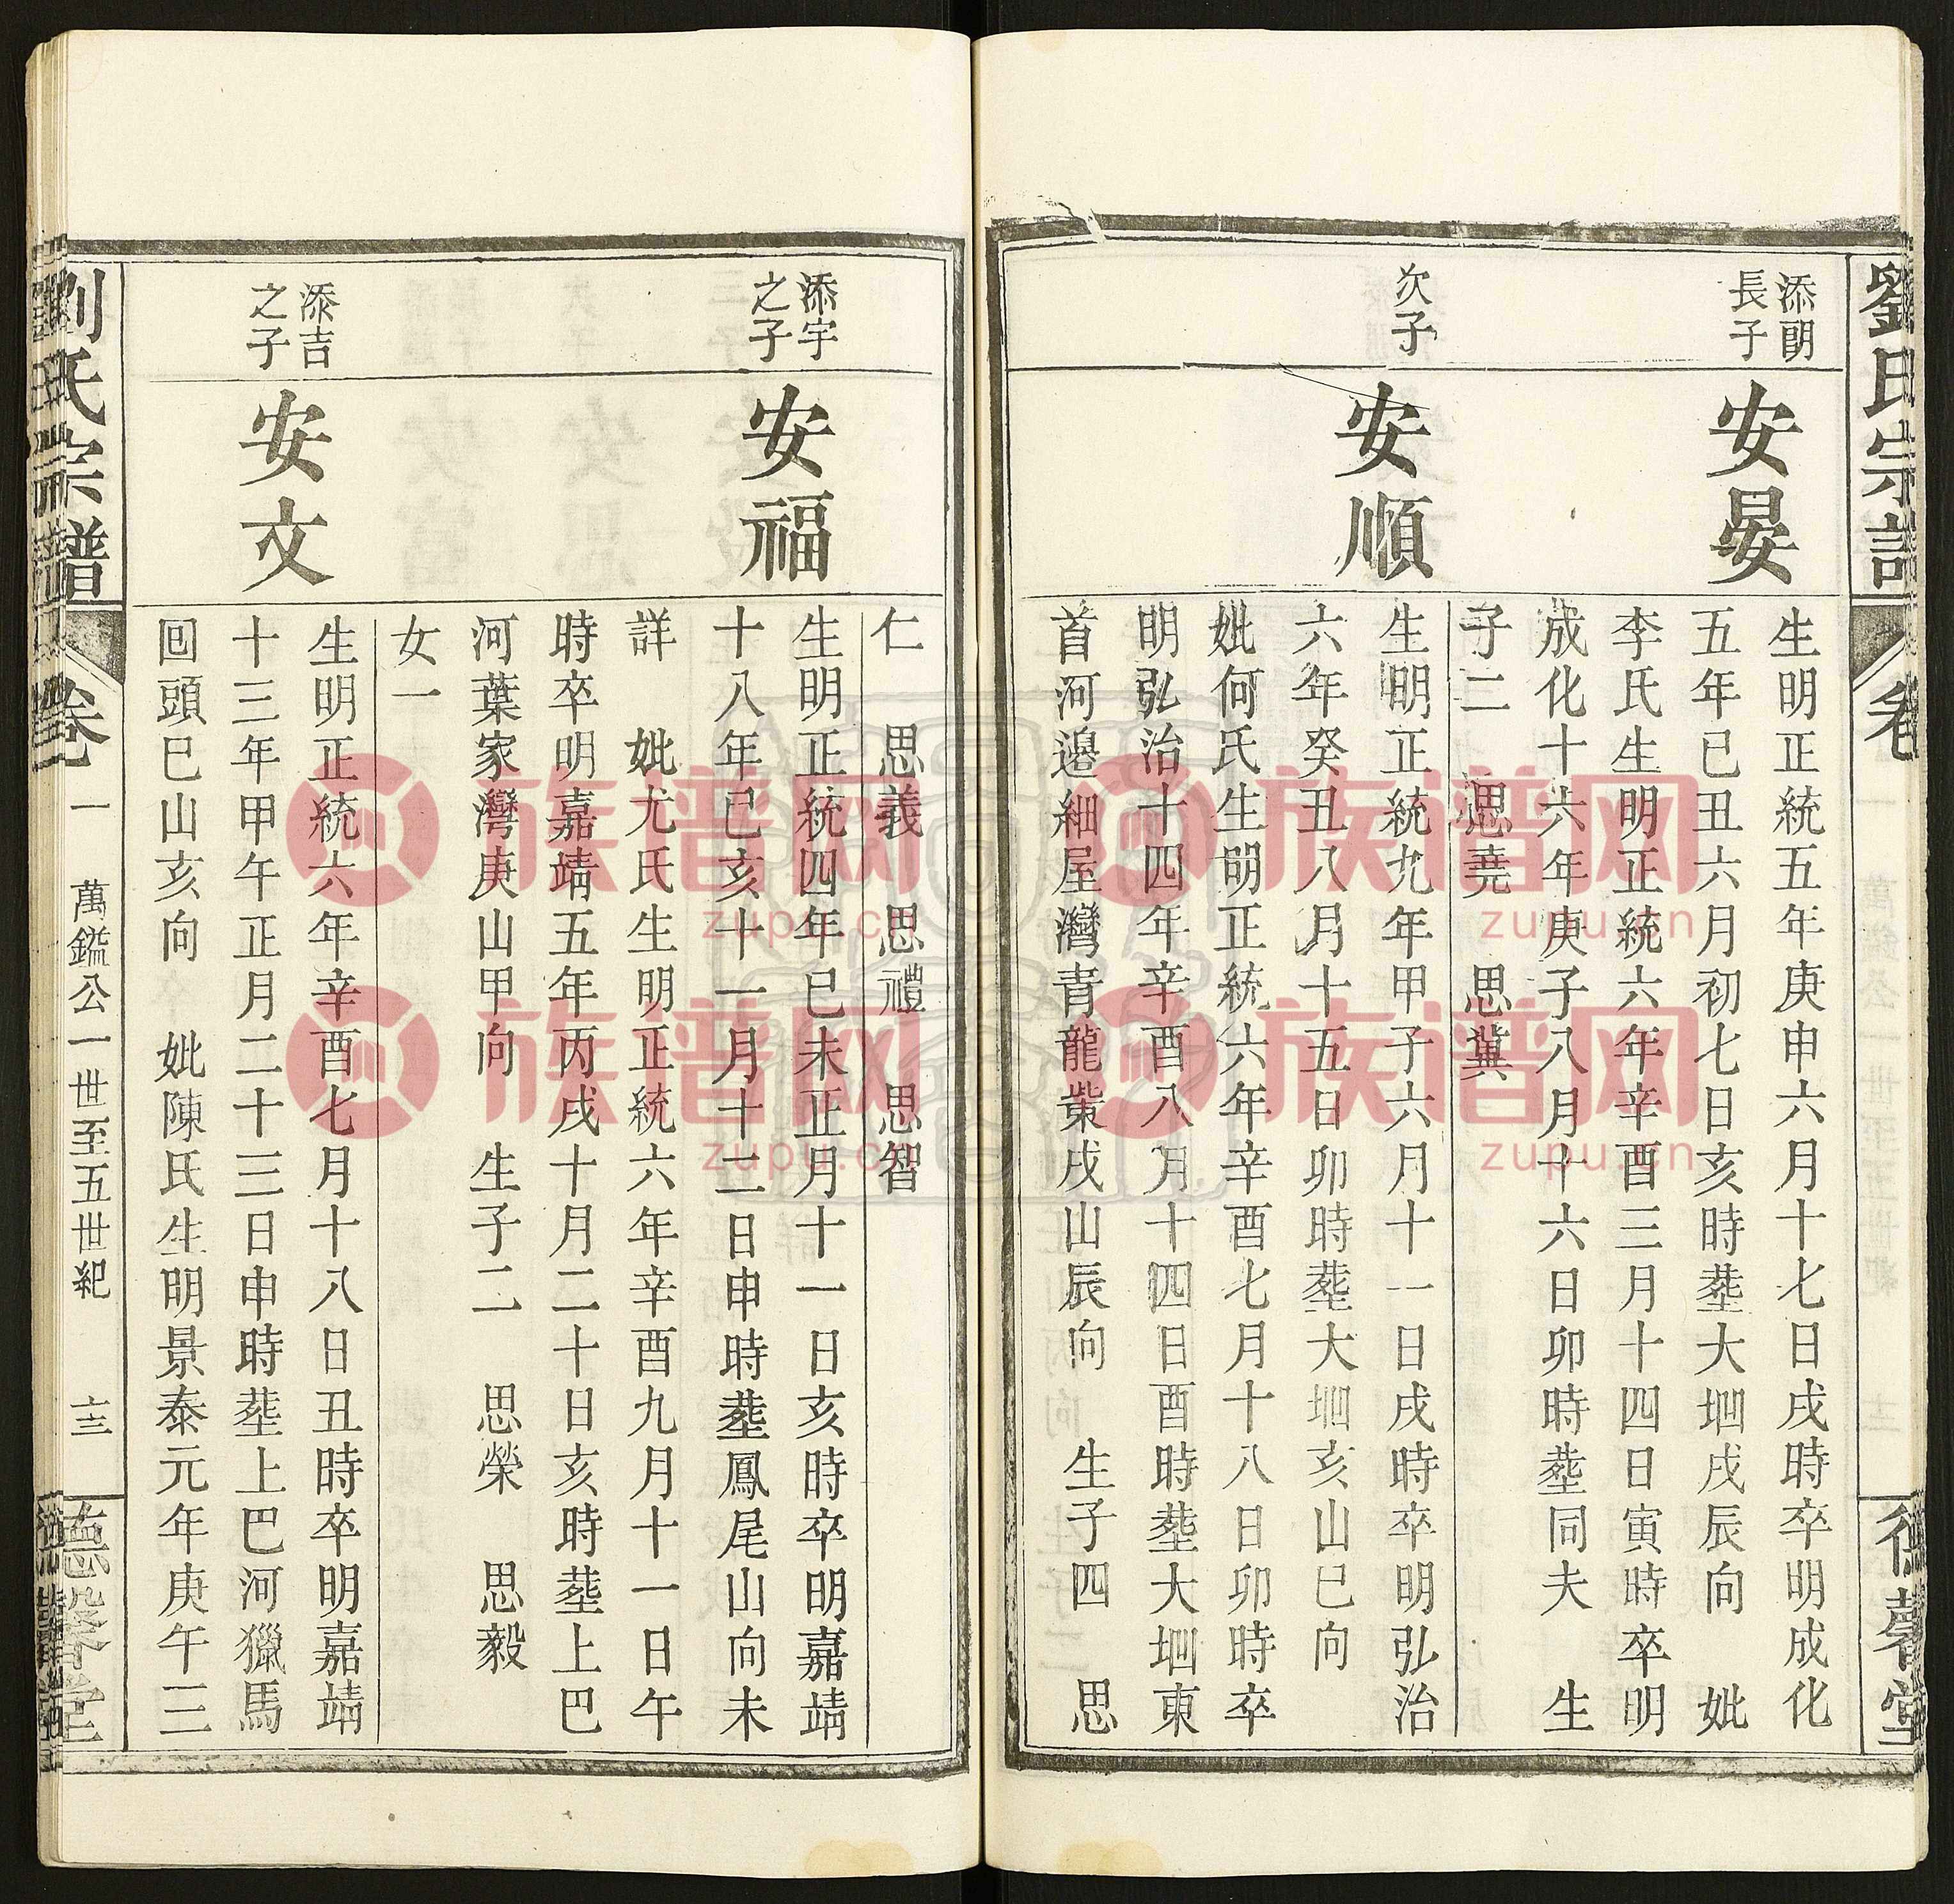 劉氏宗譜
卷
德馨堂
添明
長子
安晏
生明正統五年庚申六月十七日戌時卒明成化
五年己丑六月初七日亥時塟大坵戌辰向 妣
李氏生明正統六年辛酉三月十四日寅時卒明
成化十六年庚子八月十六日卯時塟同夫 生
子二 思堯 思冀
次子
安順
生明正統九年甲子六月十一日戌時卒明弘治
六年癸丑八月十五日卯時塟大坵亥山巳向
妣何氏生明正統六年辛酉七月十八日卯時卒
明弘治十四年辛酉八月十四日酉時塟大坵東
首河邉細屋灣青龍嘴戌山辰向 生子四 思
仁 思義 思禮 思智
添宇
之子
安福
生明正統四年己未正月十一日亥時卒明嘉靖
十八年己亥十一月十二日申時塟鳳尾山向未
詳 妣尤氏生明正統六年辛酉九月十一日午
時卒明嘉靖五年丙戌十月二十日亥時塟上巴
河葉家灣庚山甲向 生子二 思榮 思毅
女一
添吉
之子
安文
生明正統六年辛酉七月十八日丑時卒明嘉靖
十三年甲午正月二十三日申時塟上巴河獵馬
回頭巳山亥向 妣陳氏生明景泰元年庚午三
劉氏宗譜
卷
一 萬鎰公一世至五世紀 十三
德馨堂
族谱网
zupu.cn
族谱网
zupu.cn
族谱网
zupu.cn
族谱网
zupu.cn